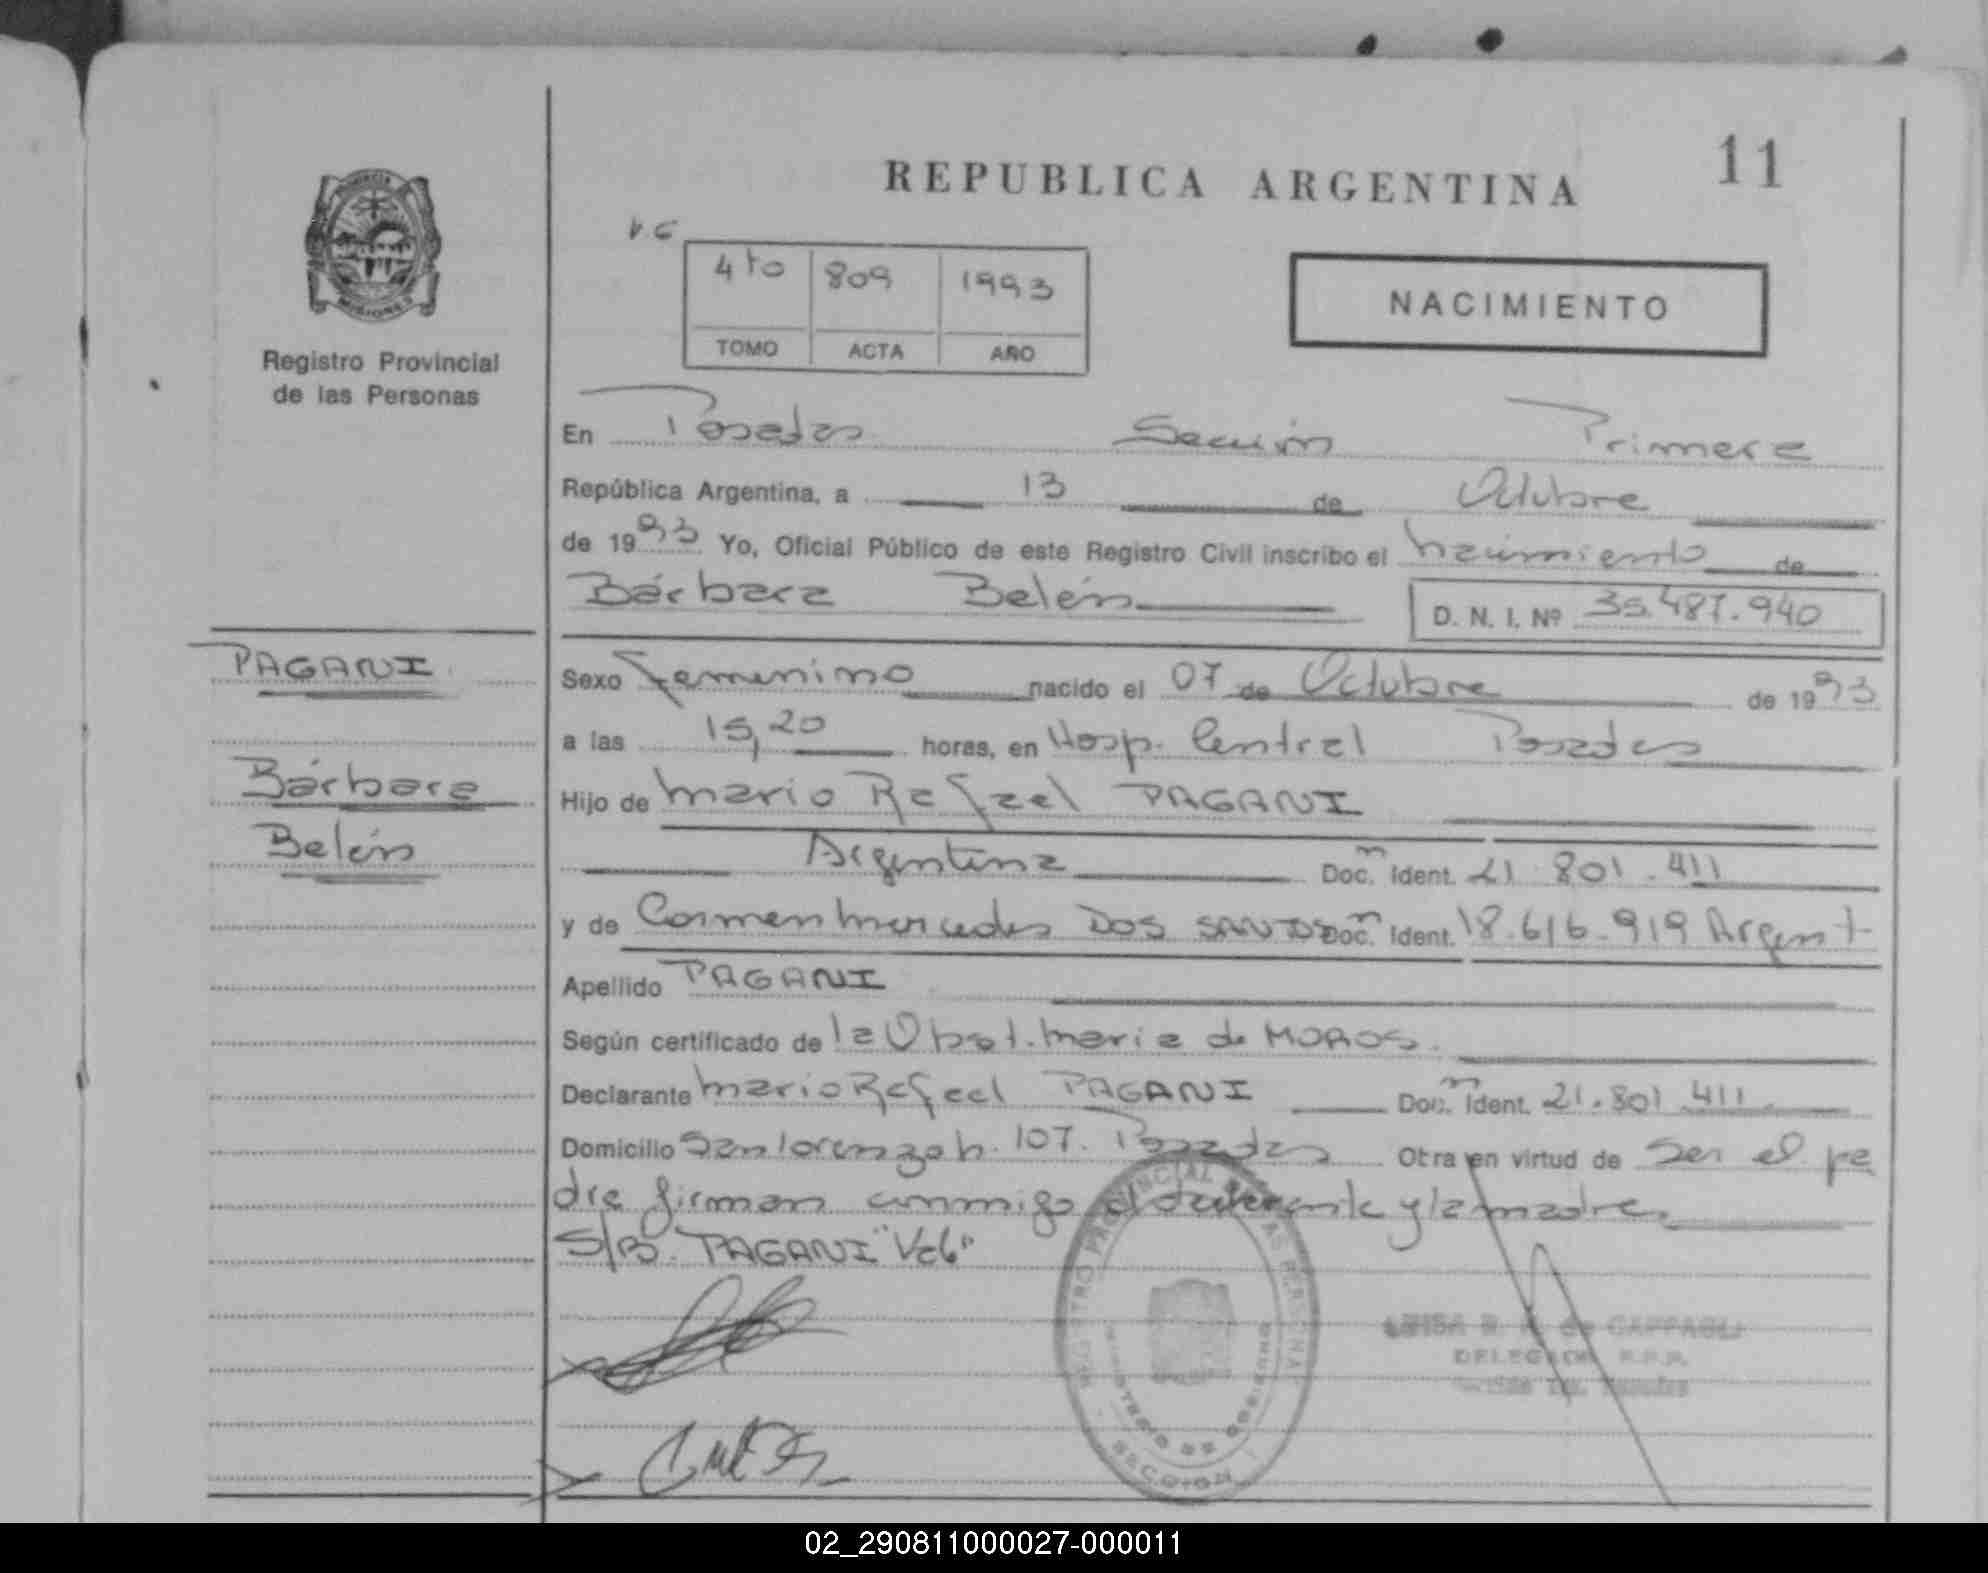 REPUBLICA ARGENTINA
11
PROVINCIA
MISIONES
Registro Provincial
de las Personas
4to 809 1993
TOMO ACTA AÑO
NACIMIENTO
En Posadas Sección Primera
República Argentina, a 13 de Octubre
de 1993 Yo, Oficial Público de este Registro Civil inscribo el nacimiento de
Bárbara Belén D. N. I. Nº 35.487.940
PAGANI
Bárbara
Belén
Sexo femenino nacido el 07 de Octubre de 1993
a las 15,20 horas, en Hosp. Central Posadas
Hijo de Mario Rafael PAGANI
Argentina Doc. Ident. 21.801.411
y de Carmen Mercedes DOS SANTOS Doc. Ident. 18.616.919 Argent
Apellido PAGANI
Según certificado de la Obst. Maria de MOROS.
Declarante Mario Rafael PAGANI Doc. Ident. 21.801.411
Domicilio San Lorenzo n. 107. Posadas Otra en virtud de ser el pa
dre firman conmigo el declarante y la madre
S/B. PAGANI "Vale"
REGISTRO PROVINCIAL DE LAS PERSONAS
MINISTERIO DE GOBIERNO
SECCION
LUISA de CAPPAGLI
DELEGADA R.P.P.
02_290811000027-000011